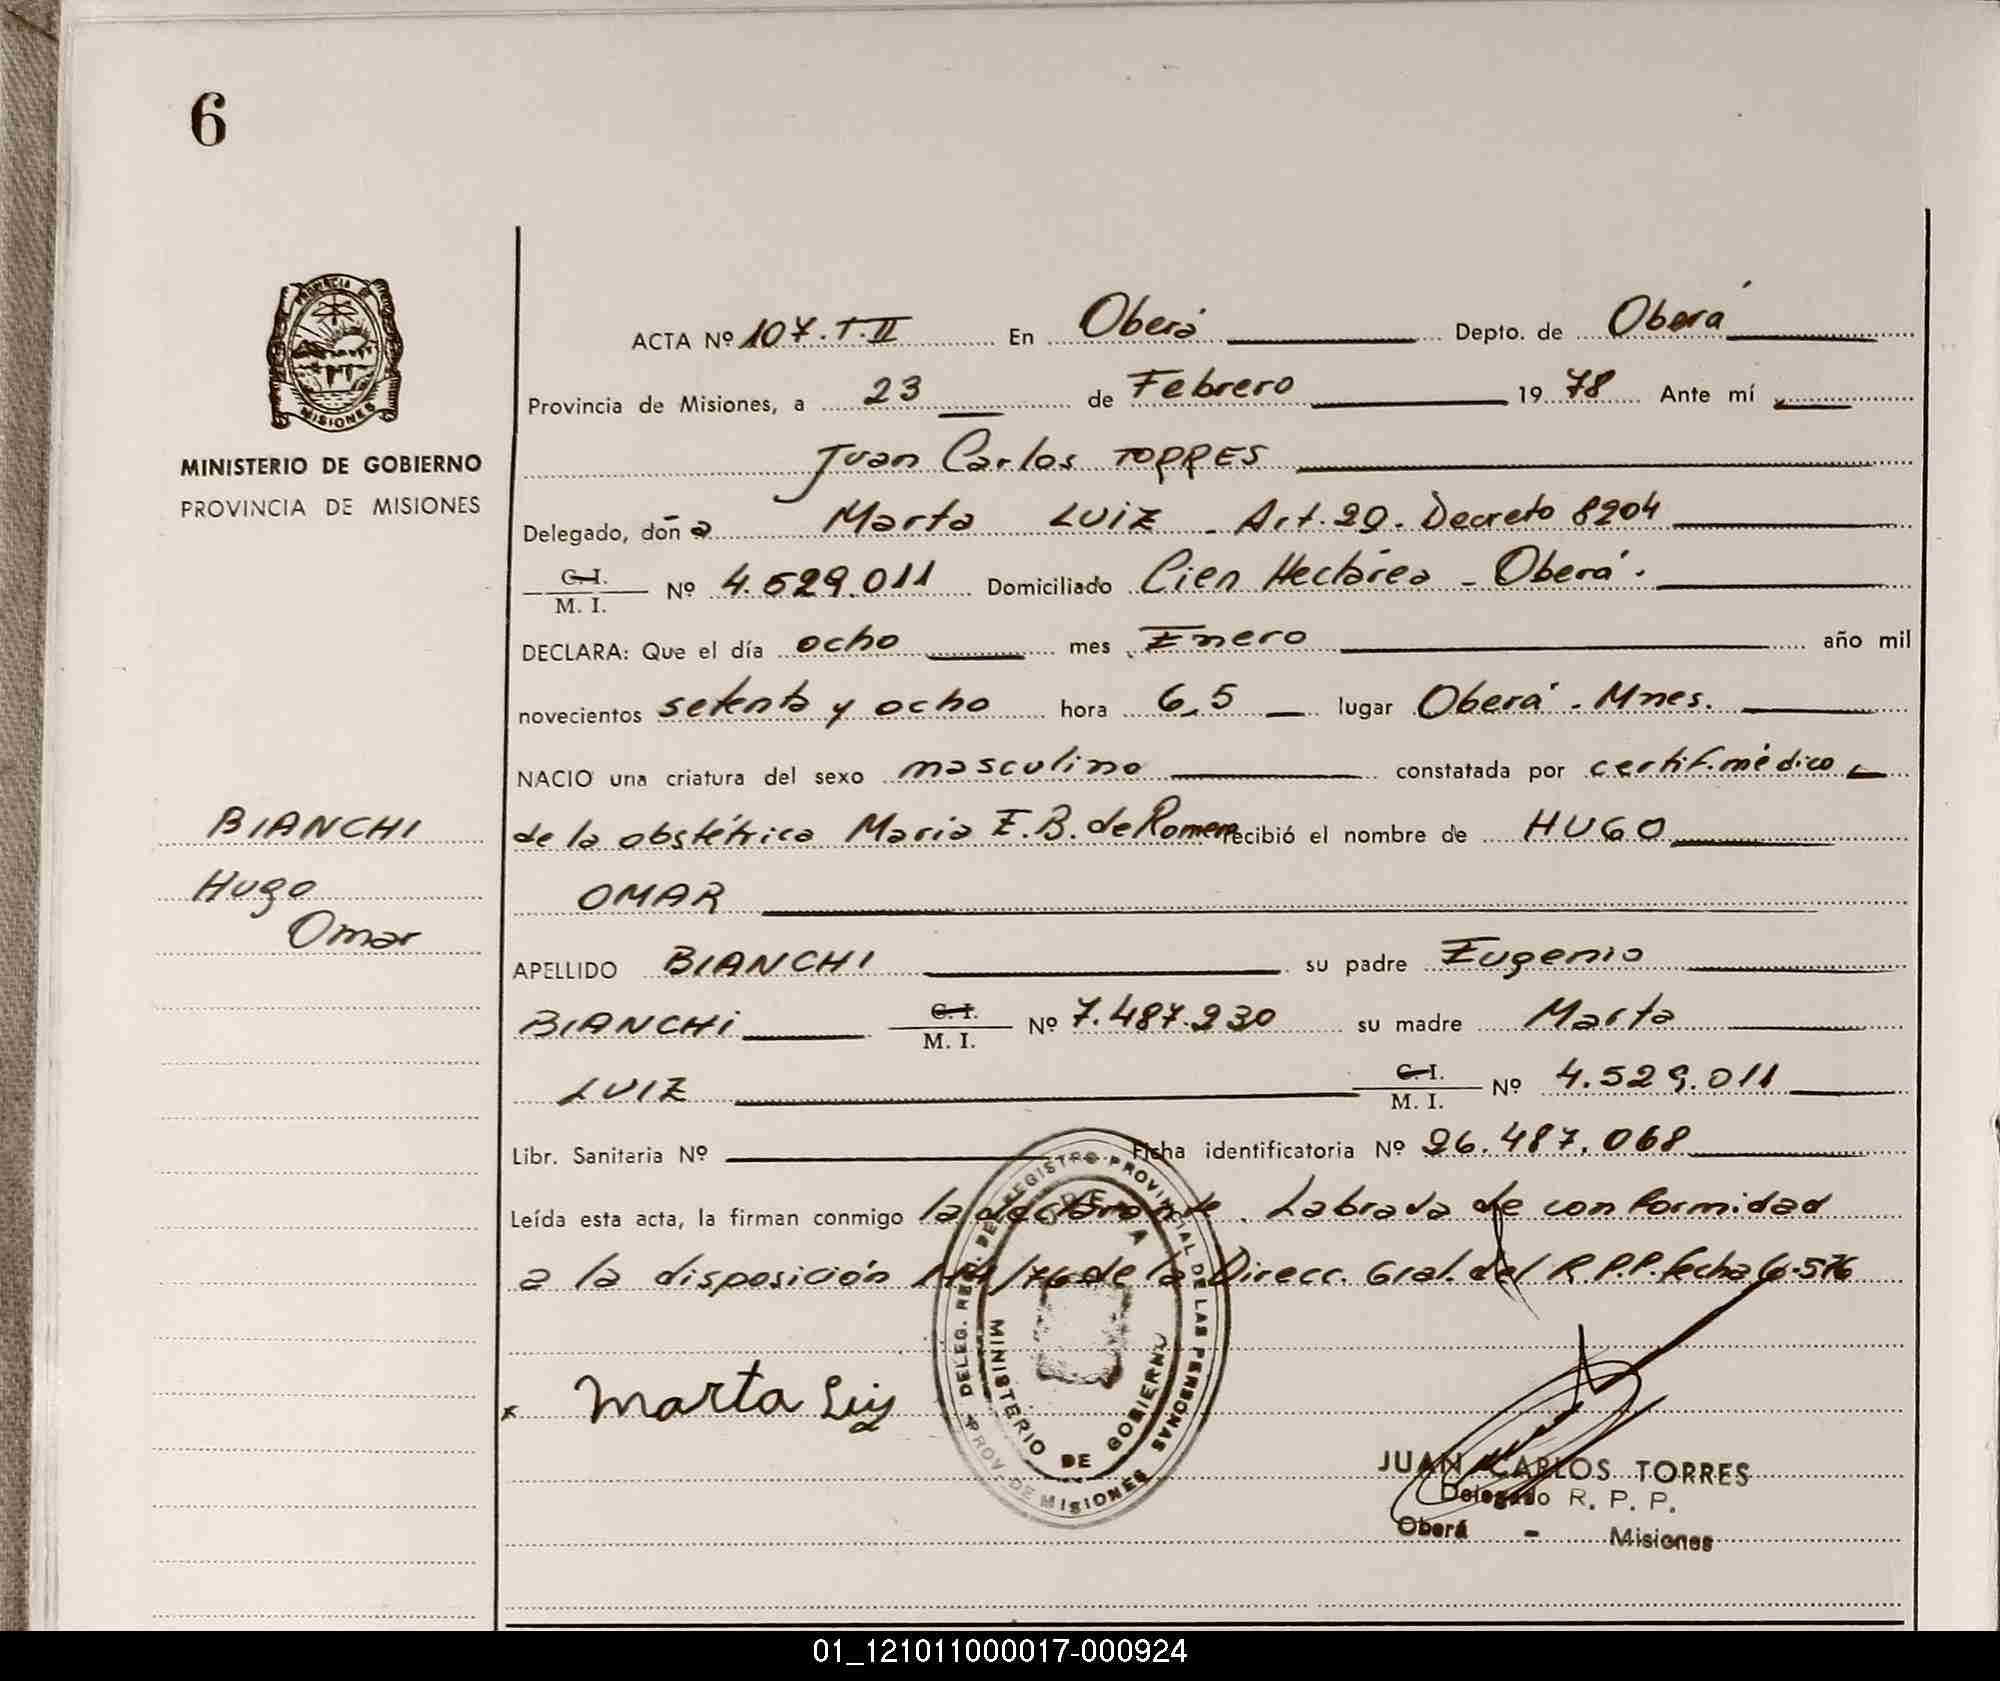 6
PROVINCIA DE
MISIONES
MINISTERIO DE GOBIERNO
PROVINCIA DE MISIONES
ACTA Nº 107.T.II En Oberá Depto. de Oberá
Provincia de Misiones, a 23 de Febrero 1978 Ante mí
Juan Carlos TORRES
Delegado, doña Marta LUIZ - Art. 29. Decreto 8204
C. I.
M. I. Nº 4.529.011 Domiciliado Cien Hectárea - Oberá.
DECLARA: Que el día ocho mes Enero año mil
novecientos setenta y ocho hora 6,5 lugar Oberá - Mnes.
NACIO una criatura del sexo masculino constatada por certif. médico
de la obstétrica María E. B. de Romero recibió el nombre de HUGO
OMAR
APELLIDO BIANCHI su padre Eugenio
BIANCHI C. I. M. I. Nº 7.487.230 su madre Marta
LUIZ C. I. M. I. Nº 4.529.011
Libr. Sanitaria Nº Ficha identificatoria Nº 26.487.068
Leída esta acta, la firman conmigo la declarante. Labrada de conformidad
a la disposición /76 de la Direcc. Gral. del R.P.P. fecha 6-5-76
BIANCHI
Hugo
Omar
x Marta Luiz
DELEG. REG. DEL REGISTRO PROVINCIAL DE LAS PERSONAS
OBERA
MINISTERIO DE GOBIERNO
PROV. DE MISIONES
JUAN CARLOS TORRES
Delegado R. P. P.
Oberá - Misiones
01_121011000017-000924